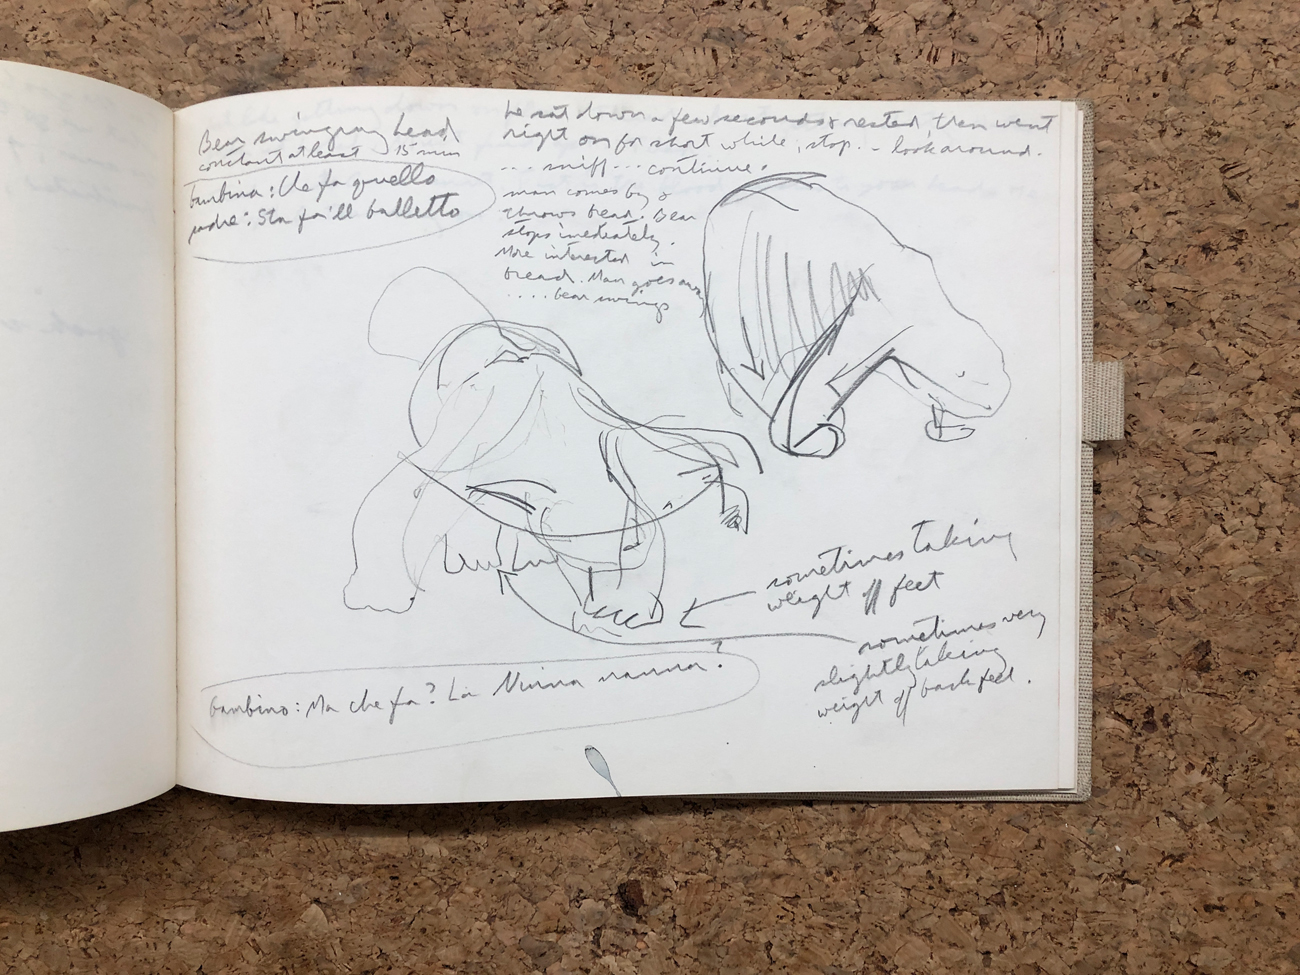 Bear swinging head
constant at least 15 min
bambina: Che fa quello
madre: Sta fa'il balletto
he sat down a few seconds & rested, then went
right on for short while, stop... look around.
... sniff... continue.
man comes by &
throws bread. Bear
stops imediately.
More interested in
bread. Man goes away
.... bear swings
sometimes taking
weight off feet
sometimes very
slightly taking
weight off back feet.
bambino: Ma che fa? La Ninna nanna?